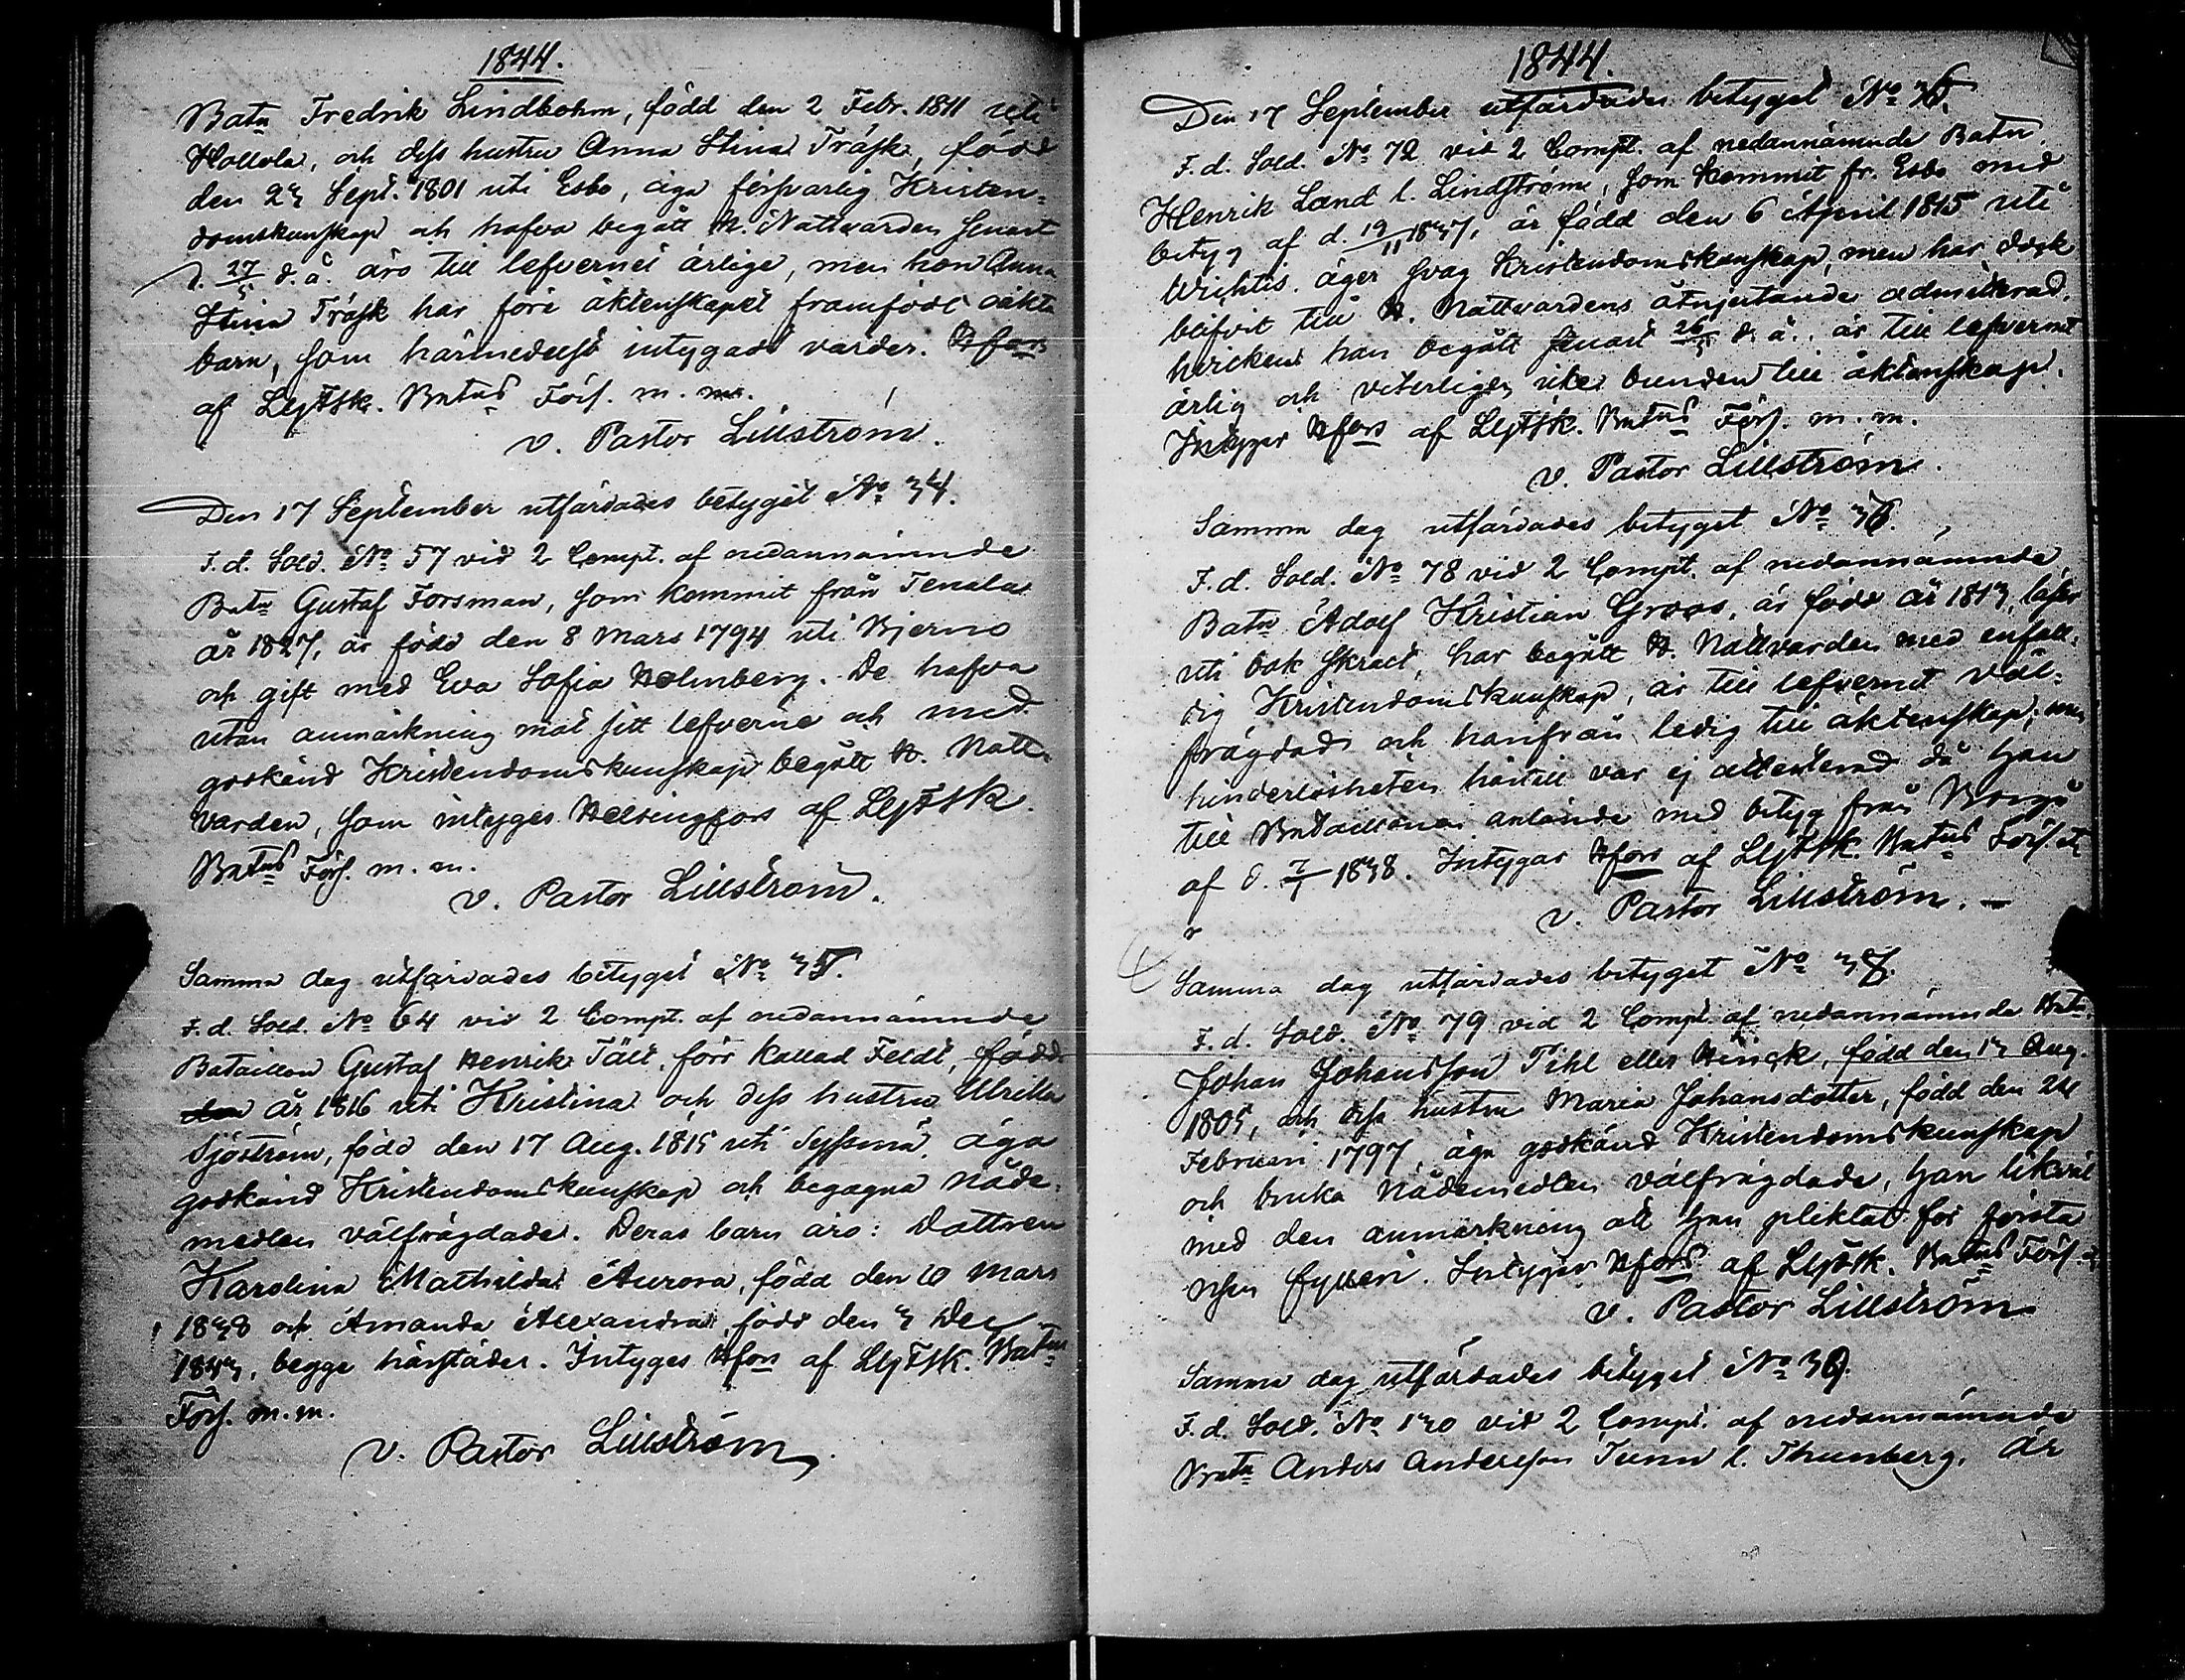 1844.
Batn Fredrik Lindbohm, född den 2 Febr. 1811 uti
Hollola, och dess hustru Anna Stina Träsk, född
den 23 Sept. 1801 uti Esbo, äga försvarlig Kristen-
domskunskap och hafva begått H. Nattvarden senast
d. 27/5 d. å. äro till lefvernet ärlige, men hon Anna
Stina Träsk har före äktenskapet framfödt oäkta
barn, som härmedelst intygadt varder. Hfors
af LljFsk. Batns Förs. m. m.
v. Pastor Lillström.
Den 17 September utfärdades betyget No 34.
F. d. Sold. No 57 vid 2 Compt. af nedannämnde
Batn Gustaf Forsman, som kommit från Tenala
år 1827, är född den 8 Mars 1794 uti Bjerno
och gift med Eva Sofia Holmberg. De hafva
utan anmärkning mot sitt lefverne och med
godkänd Kristendomskunskap begått H. Natt-
varden, som intyges Helsingfors af LljFsk.
Batns Förs. m. m.
v. Pastor Lillström.
Samma dag utfärdades betyget No 35.
F. d. Sold. No 64 vid 2 Compt. af nedannämnde
Bataillon Gustaf Henrik Tält, förr kallad Feldt, född
den år 1816 uti Kristina och dess hustru Ulrika
Sjöström, född den 17 Aug. 1815 uti Sysmä, äga
godkänd Kristendomskunskap och begagna nåde-
medlen välfrägdade. Deras barn äro: Dottren
Karolina Mathilda Aurora, född den 10 Mars
1838 och Amanda Alexandra, född den 3 Dec
1843, begge härstädes. Intyges Hfors af LljFsk. Batns
Förs. m. m.
v. Pastor Lillström
1844.
Den 17 September utfärdades betyget No 36.
F. d. Sold. No 72 vid 2 Compt. af nedannämnde Batn
Henrik Land l. Lindström, som kommit fr. Esbo med
betyg af d. 19/11 1837, är född den 6 April 1815 uti
Wichtis, äger svag Kristendomskunskap, men har dock
blifvit till H. Nattvardens åtnjutande admitterad,
hvilken han begått senast 26/5 d. å., är till lefvernet
ärlig och veterligen icke bunden till äktenskap.
Intygar Hfors af LljFsk. Batns Förs. m. m.
v. Pastor Lillström.
Samma dag utfärdades betyget No 37.
F. d. Sold. No 78 vid 2 Compt. af nedannämnde
Batn Adolf Kristian Groos, är född år 1813, läser
uti bok skralt, har begått H. Nattvarden med enfal-
dig Kristendomskunskap, är till lefvernet väl-
frägdad och härifrån ledig till äktenskap; men
hinderlösheten härtill var ej attesterad då han
till Bataillonen anlände med betyg från Borgå
af d. 7/1 1838. Intygar Hfors af LljFsk. Batns Förs. etc
v. Pastor Lillström.
Samma dag utfärdades betyget No 38.
F. d. Sold. No 79 vid 2 Compt. af nedannämnde Batn
Johan Johansson Pihl eller Hinck, född den 13 Aug.
1805, och dess hustru Maria Johansdotter, född den 24
Februari 1797, äga godkänd Kristendomskunskap
och bruka Nådemedlen välfrägdade, han likväl
med den anmärkning att han pliktat för första
resan fylleri. Intygar Hfors af LljFsk. Batns Förs.
v. Pastor Lillström
Samma dag utfärdades betyget No 39.
F. d. Sold. No 130 vid 2 Compt. af nedannämnda
Batn Anders Andersson Tunn l. Thunberg, är